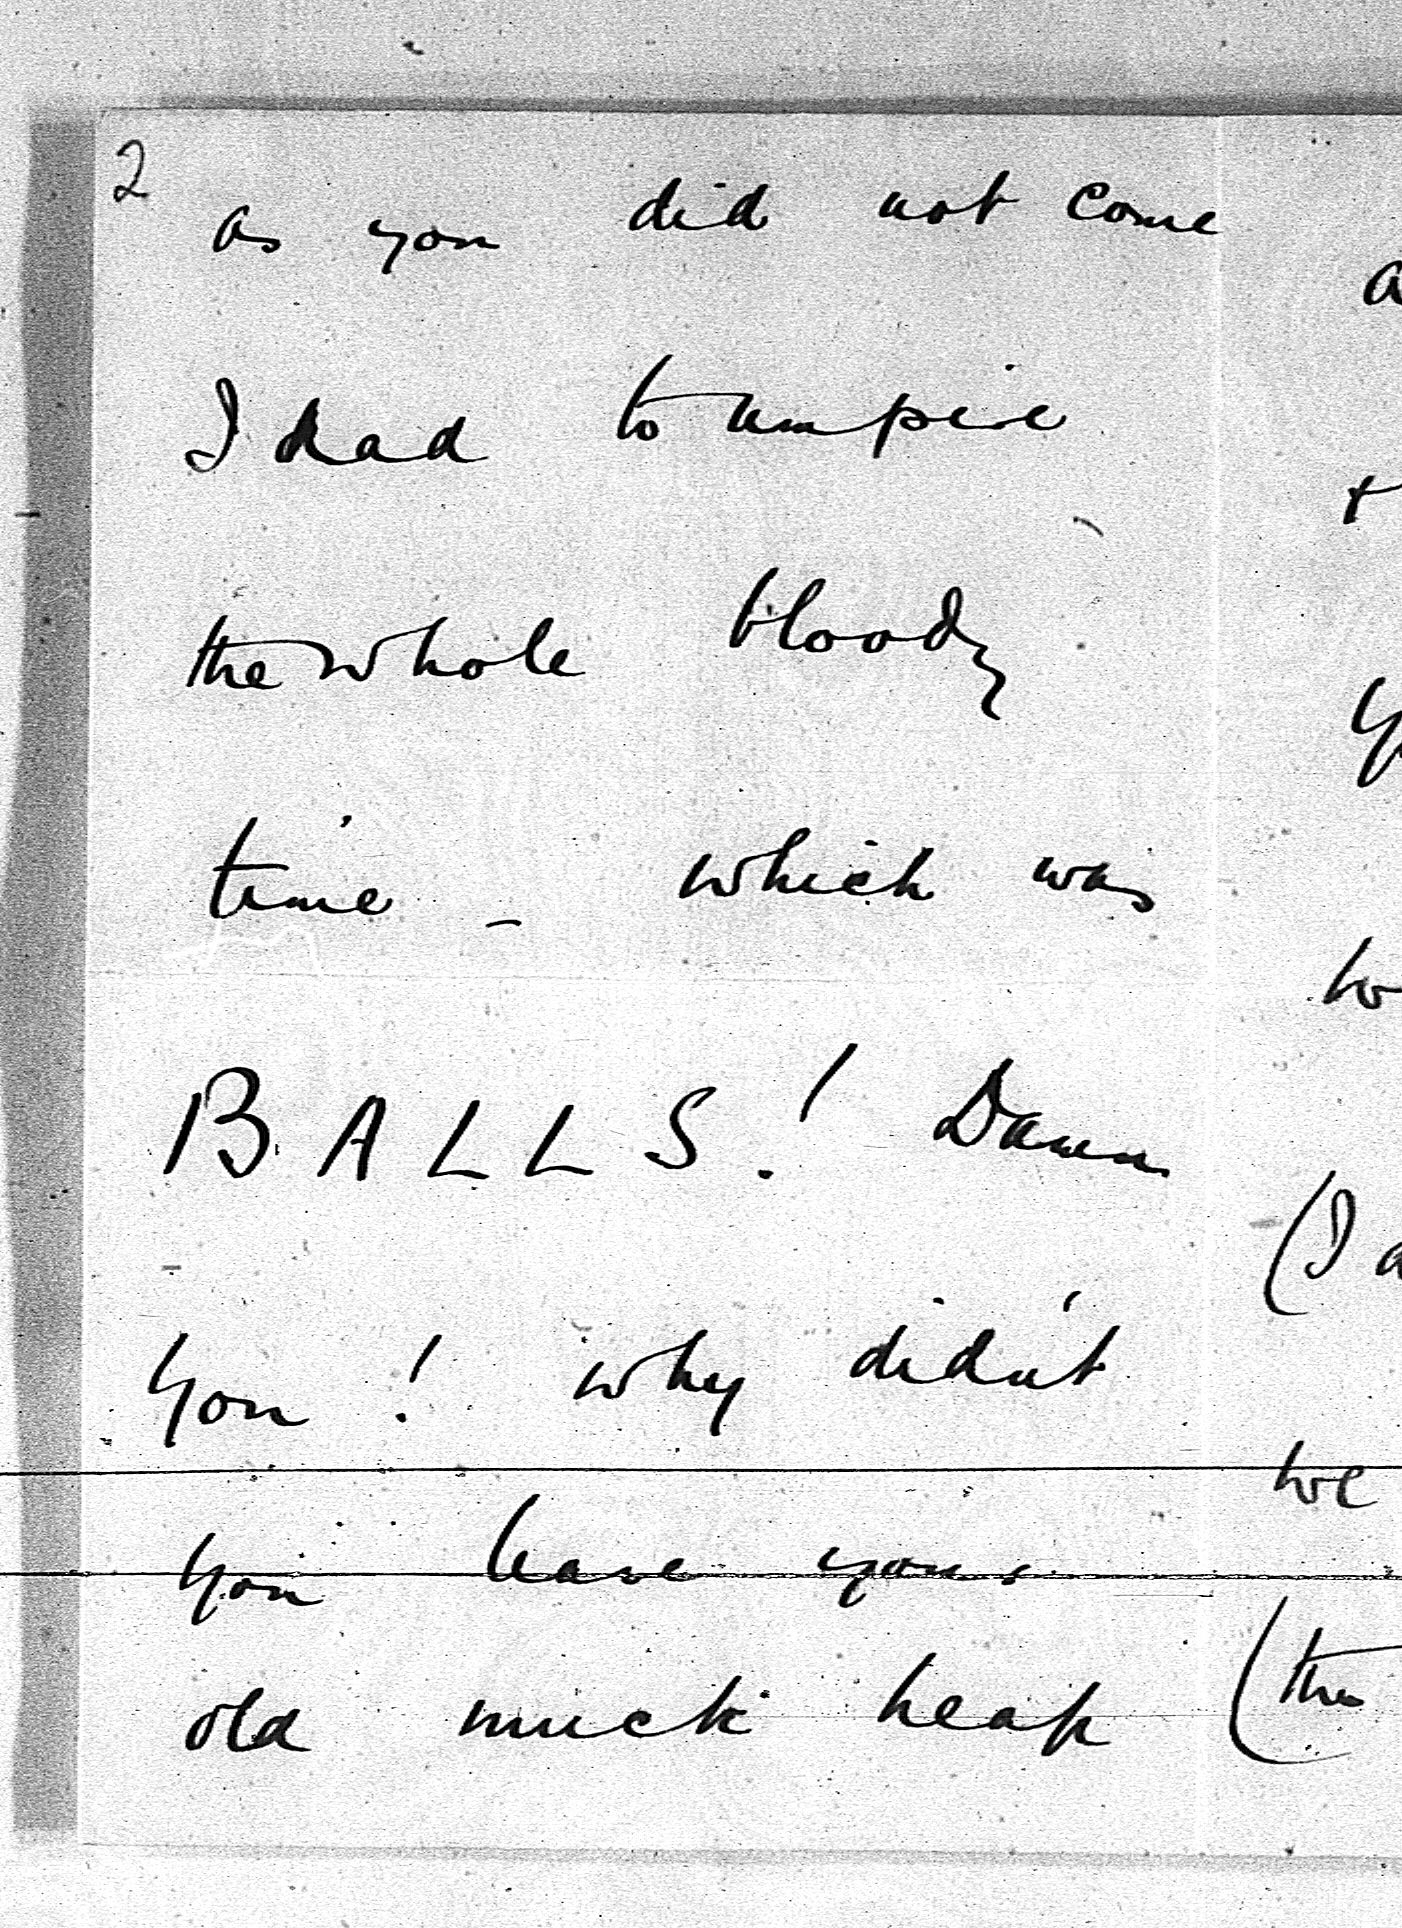 2
as you did not come
I had to umpire
the whole bloody
time - which was
BALLS! Damn
you! why didn't
you leave your
old muck heap
a
+
y
to
(I a
we
(the